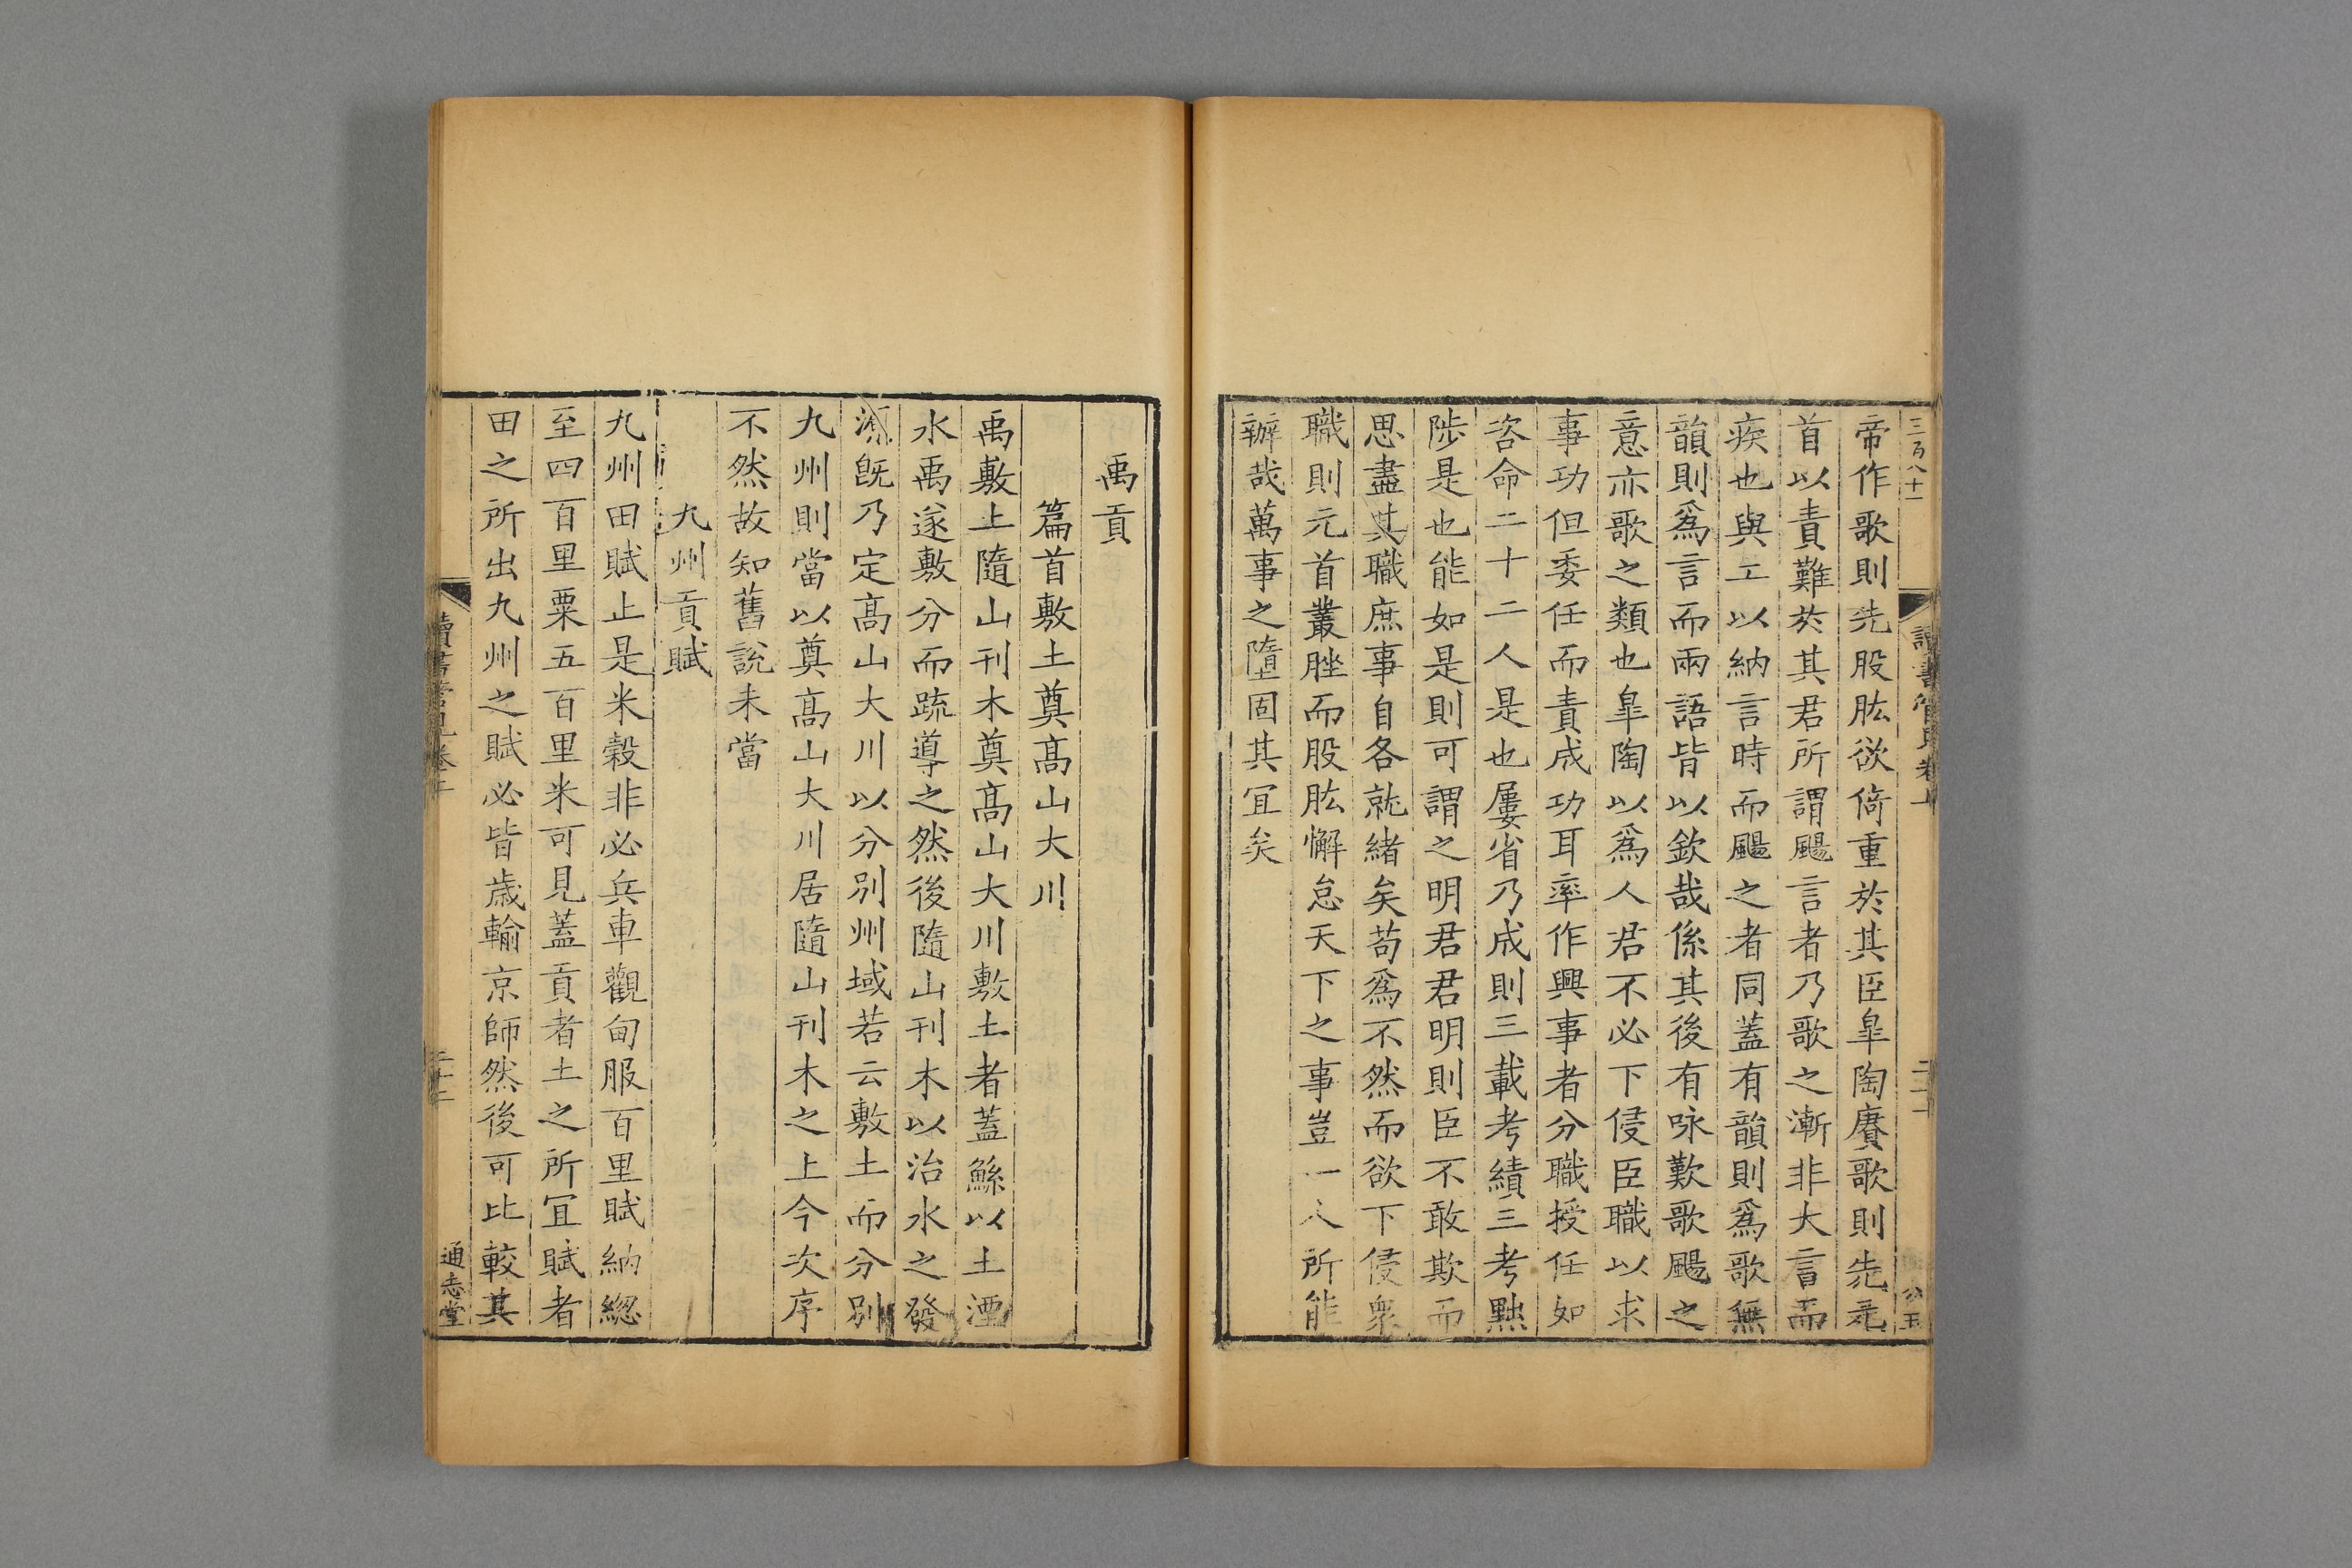 三百八十一
帝作歌則先股肱欲倚重於其臣臯陶賡歌則先元
首以責難於其君所謂颺言者乃歌之漸非大言而
疾也與工以納言時而颺之者同蓋有韻則爲歌無
韻則爲言而兩語皆以欽哉係其後有咏歎歌颺之
意亦歌之類也臯陶以爲人君不必下侵臣職以求
事功但委任而責成功耳率作興事者分職授任如
咨命二十二人是也屢省乃成則三載考績三考黜
陟是也能如是則可謂之明君君明則臣不敢欺而
思盡其職庶事自各就緒矣苟爲不然而欲下侵衆
職則元首叢脞而股肱懈怠天下之事豈一人所能
辦哉萬事之墮固其宜矣
禹貢
篇首敷土奠高山大川
禹敷土隨山刊木奠高山大川敷土者蓋鯀以土湮
水禹遂敷分而疏導之然後隨山刊木以治水之發
源旣乃定高山大川以分別州域若云敷土而分別
九州則當以奠高山大川居隨山刊木之上今次序
不然故知舊說未當
九州貢賦
九州田賦止是米穀非必兵車觀甸服百里賦納總
至四百里粟五百里米可見蓋貢者土之所宜賦者
田之所出九州之賦必皆歲輸京師然後可比較其
通志堂